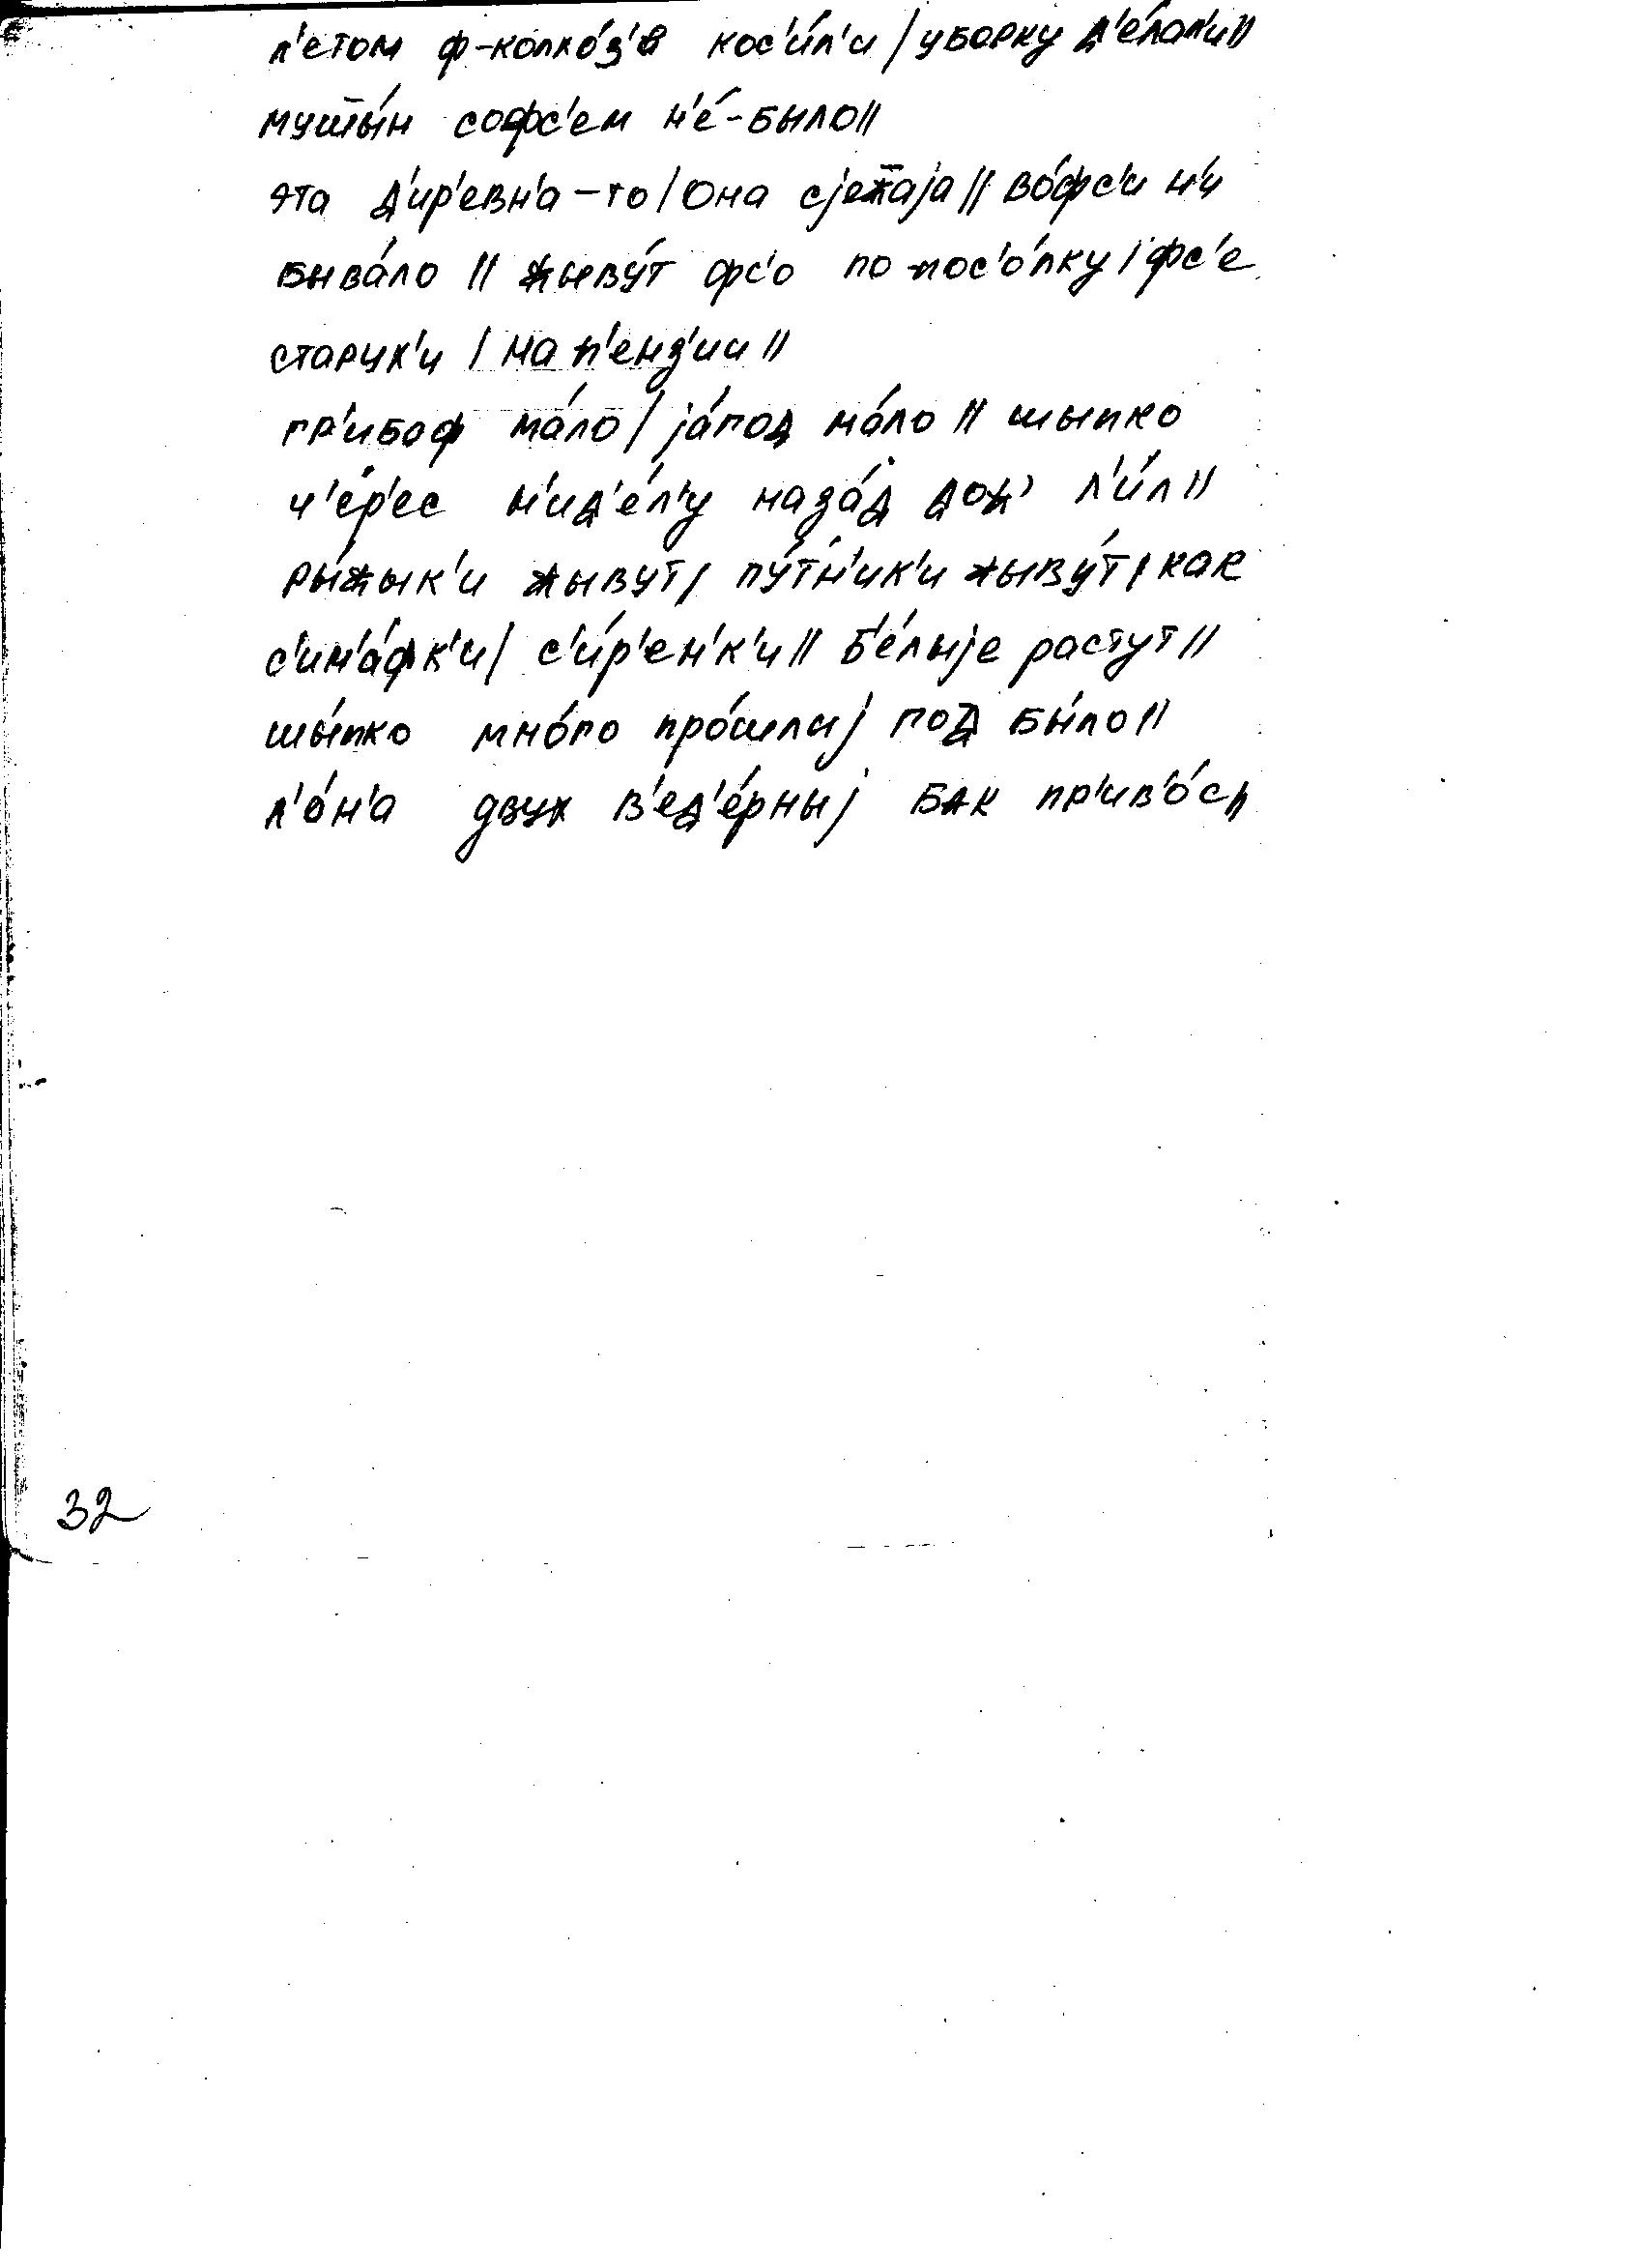 л'етом ф-колхо́з'е кос'и́л'и / уборку д'е́лал'и //
мушы̄́н софс'ем н'е́-было //
эта д'ир'евн'а-то / Она сјежа̄ја // во́фс'и н'и
быва́ло // жыву́т фс'о по-пос'о́лку / фс'е
старух'и / на п'енз'ии //
гр'ибоф ма́ло /ја́год ма́ло // шыпко
ч'е́р'ес н'ид'е́л'у наза́д дож' л'и́л //
ры́жык'и жывут / пу́тн'ик'и жыву́т / как
с'ин'а́фк'и / с'и́р'ен'к'и // б'е́лыје растут //
шы́пко мно́го про́шлыј год бы́ло //
л'о́н'а двух в'ед'е́рныј бак пр'ив'о́с //
32